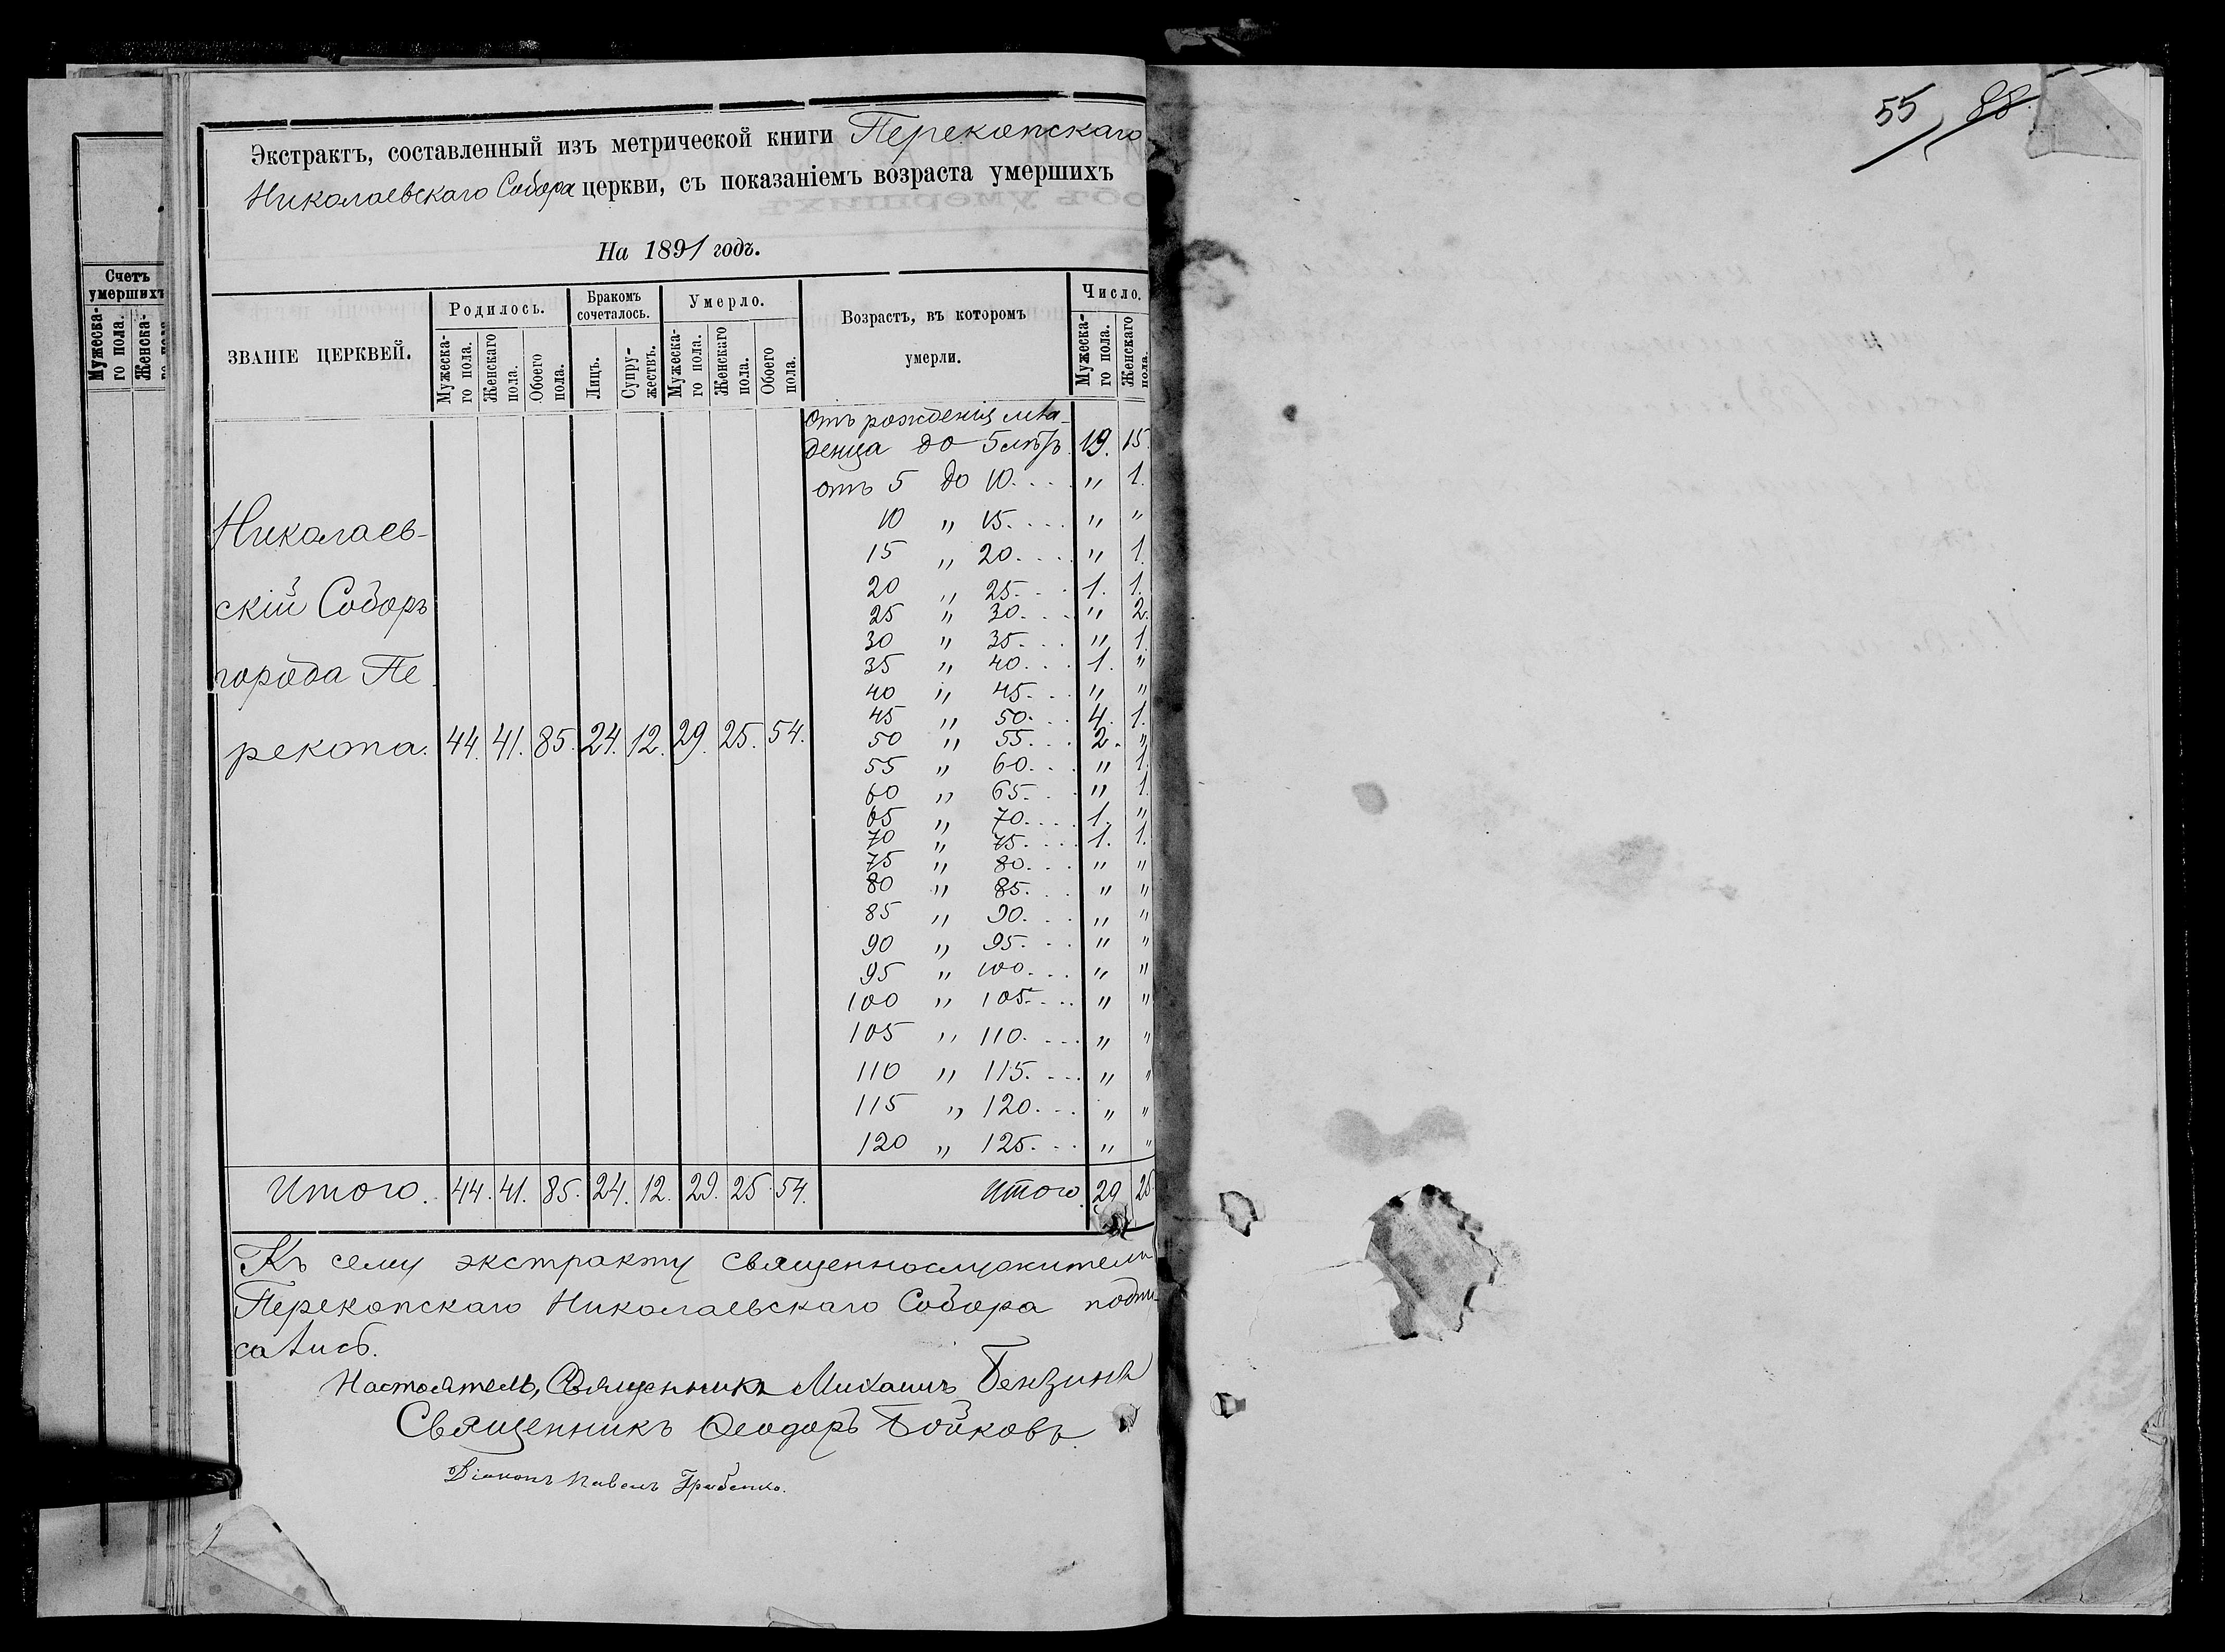 Счетъ
умершихъ
Мужеска-
го пола.
Женска-
Экстрактъ, составленный изъ метрической книги Перекопскаго
Николаевскаго Собора церкви, съ показаніемъ возраста умершихъ
На 1891 годъ.
ЗВАНІЕ ЦЕРКВЕЙ. Родилось. Бракомъ сочеталось. Умерло. Возрастъ, въ которомъ умерли. Число.
Мужеска-го пола. Женскаго пола. Обоего пола. Лицъ. Супру-жествъ. Мужеска-го пола. Женскаго пола. Обоего пола. Мужеска-го пола. Женскаго пола.
отъ рожденія мла-
денца до 5 лѣтъ 19. 15.
отъ 5 до 10. . . . " 1.
Николаев- 10 " 15. . . . " "
15 " 20. . . . " 1.
скій Соборъ 20 " 25. . . 1. 1.
25 " 30. . . " 2.
30 " 35. . . " 1.
города Пе 35 " 40. . . 1. "
40 " 45. . . " "
45 " 50. . . 4. 1.
рекопа. 44. 41. 85. 24. 12. 29. 25. 54. 50 " 55. . . 2. "
55 " 60. . . " 1.
60 " 65. . . " 1.
65 " 70. . . . 1. "
70 " 75. . . . 1. 1.
75 " 80. . . " "
80 " 85. . . " "
85 " 90. . . " "
90 " 95. . . " "
95 " 100. . . " "
100 " 105. . . " "
105 " 110. . . . " "
110 " 115. . . . " "
115 " 120. . . " "
120 " 125. . . " "
Итого. 44. 41. 85. 24. 12. 29. 25. 54. Итого. 29 25
Къ сему экстракту священнослужители
Перекопскаго Николаевскаго Собора подпи-
сались.
Настоятель, Священникъ Михаилъ Бензинъ
Священникъ Ѳеодоръ Бойковъ.
Діаконъ Павелъ Грибенко.
55 88.